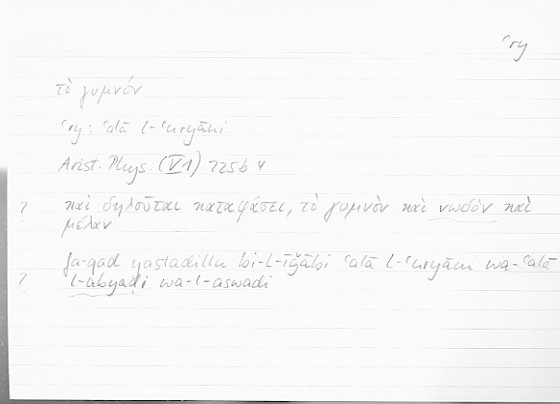 ʿry
τὸ γυμνόν
ʿry: ʿalā l-ʿuryāni
Arist. Phys. (V 1) 225b 4
? καὶ δηλοῦται καταφάσει, τὸ γυμνὸν καὶ νωδὸν καὶ
μέλαν
fa-qad yastadillu bi-l-īǧābi ʿalā l-ʿuryāni wa-ʿalā
? l-abyaḍi wa-l-aswadi